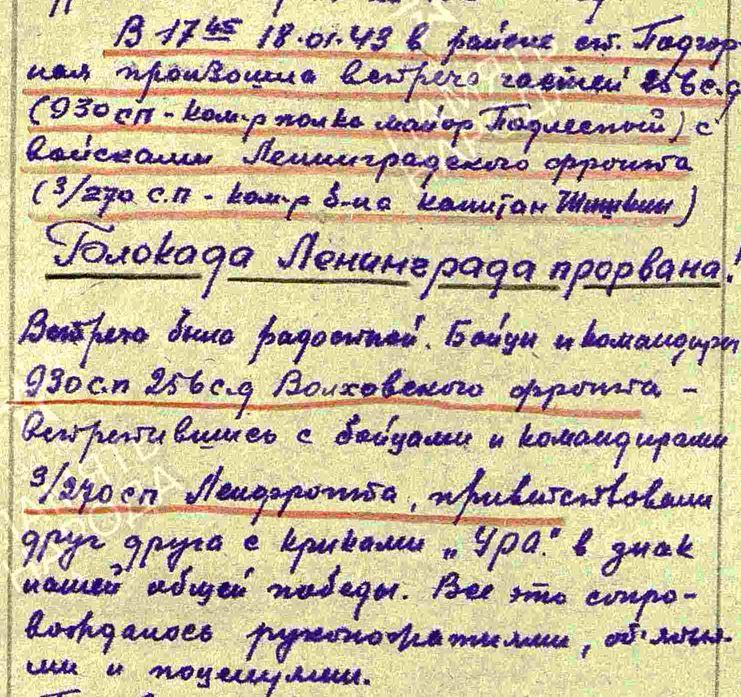 В 17 45 18.01.43 в районе ст. Подгор-
ная произошла встреча частей 256 с.д
(930 сп - ком-р полка майор Подлесный) с
войсками Ленинградского фронта
(3/270 с.п - ком-р б-на капитан)
Блокада Ленинграда прорвана!
Встреча была радостной. Бойцы и командиры
930 с.п 256 с.д Волховского фронта -
встретившись с бойцами и командирами
3/270 сп Ленфронта, приветствовали
друг друга с криками „Ура." в знак
нашей общей победы. Все это сопро-
вождалось рукопожатиями, объятия-
ми и поцелуями.